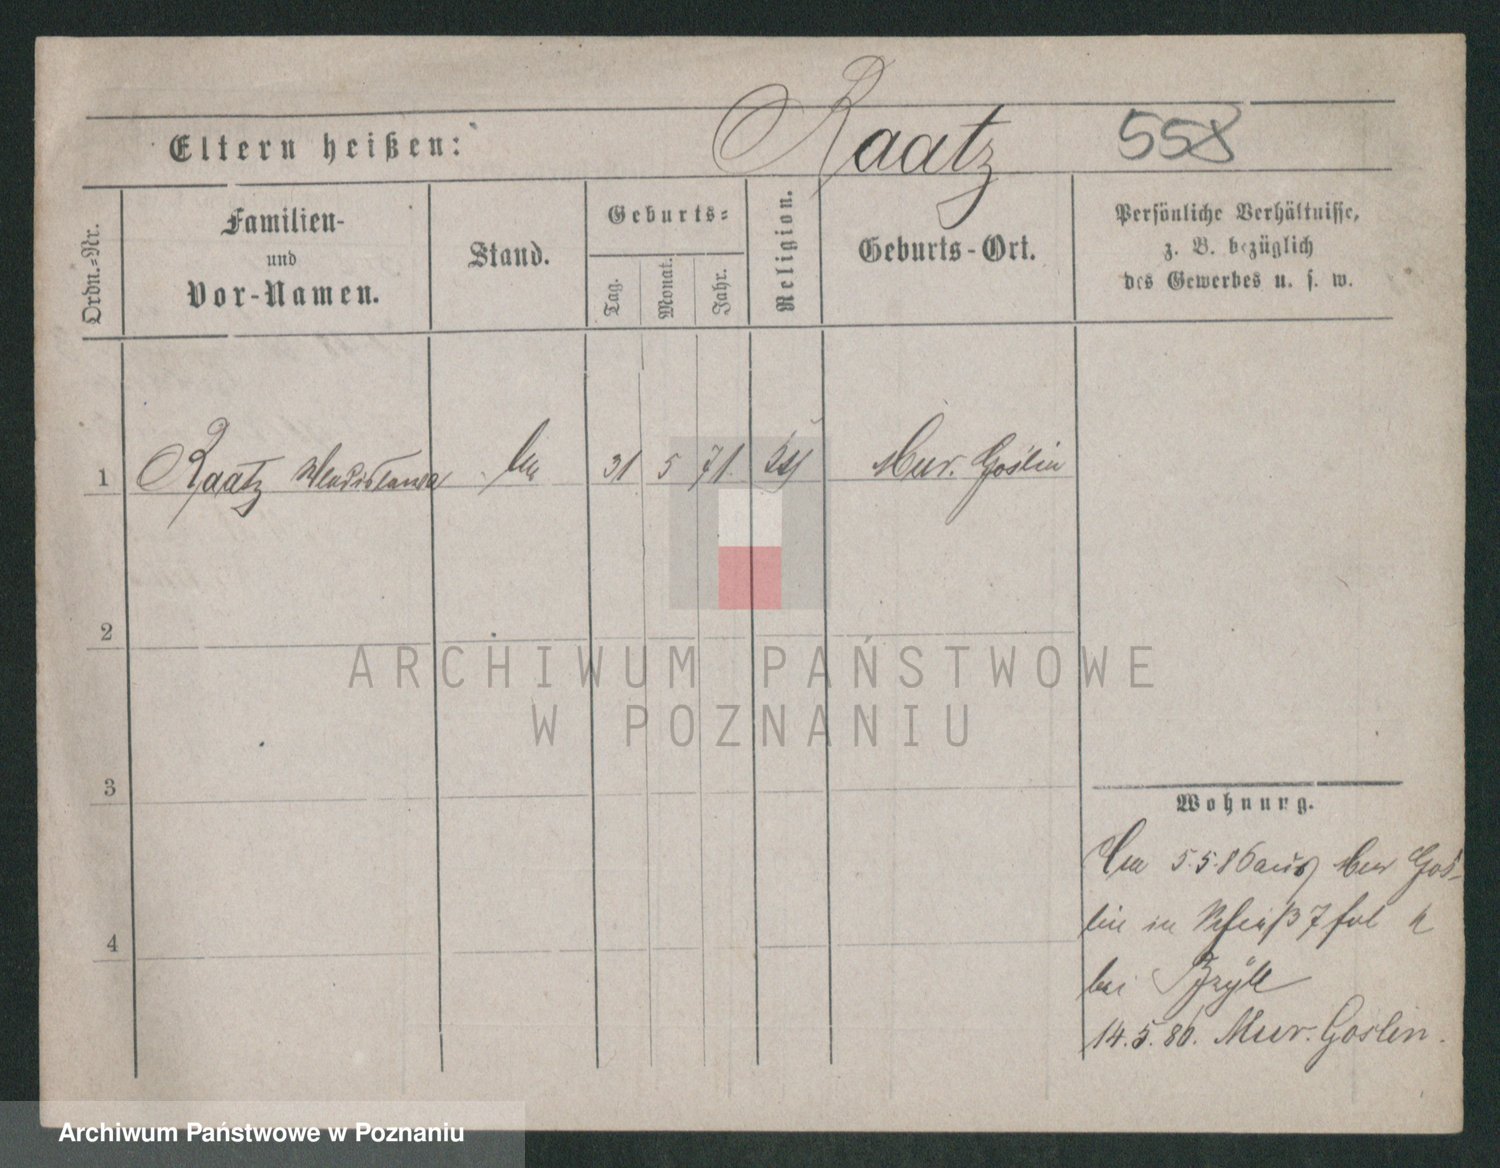 Eltern heißen: Raatz 558
Ordn.-Nr.
Familien-
und
Vor-Namen.
Stand.
Geburts-
Tag.
Monat.
Jahr.
Religion.
Geburts-Ort.
Persönliche Verhältnisse,
z. B. bezüglich
des Gewerbes u. s. w.
1 Raatz Wladislawa 31 5 71. Mur. Goślin
2
3
4
Wohnung.
5.5.86 aus Mur Gos-
lin in
bei
14.5.86. Mur. Goslin.
ARCHIWUM PAŃSTWOWE
W POZNANIU
Archiwum Państwowe w Poznaniu